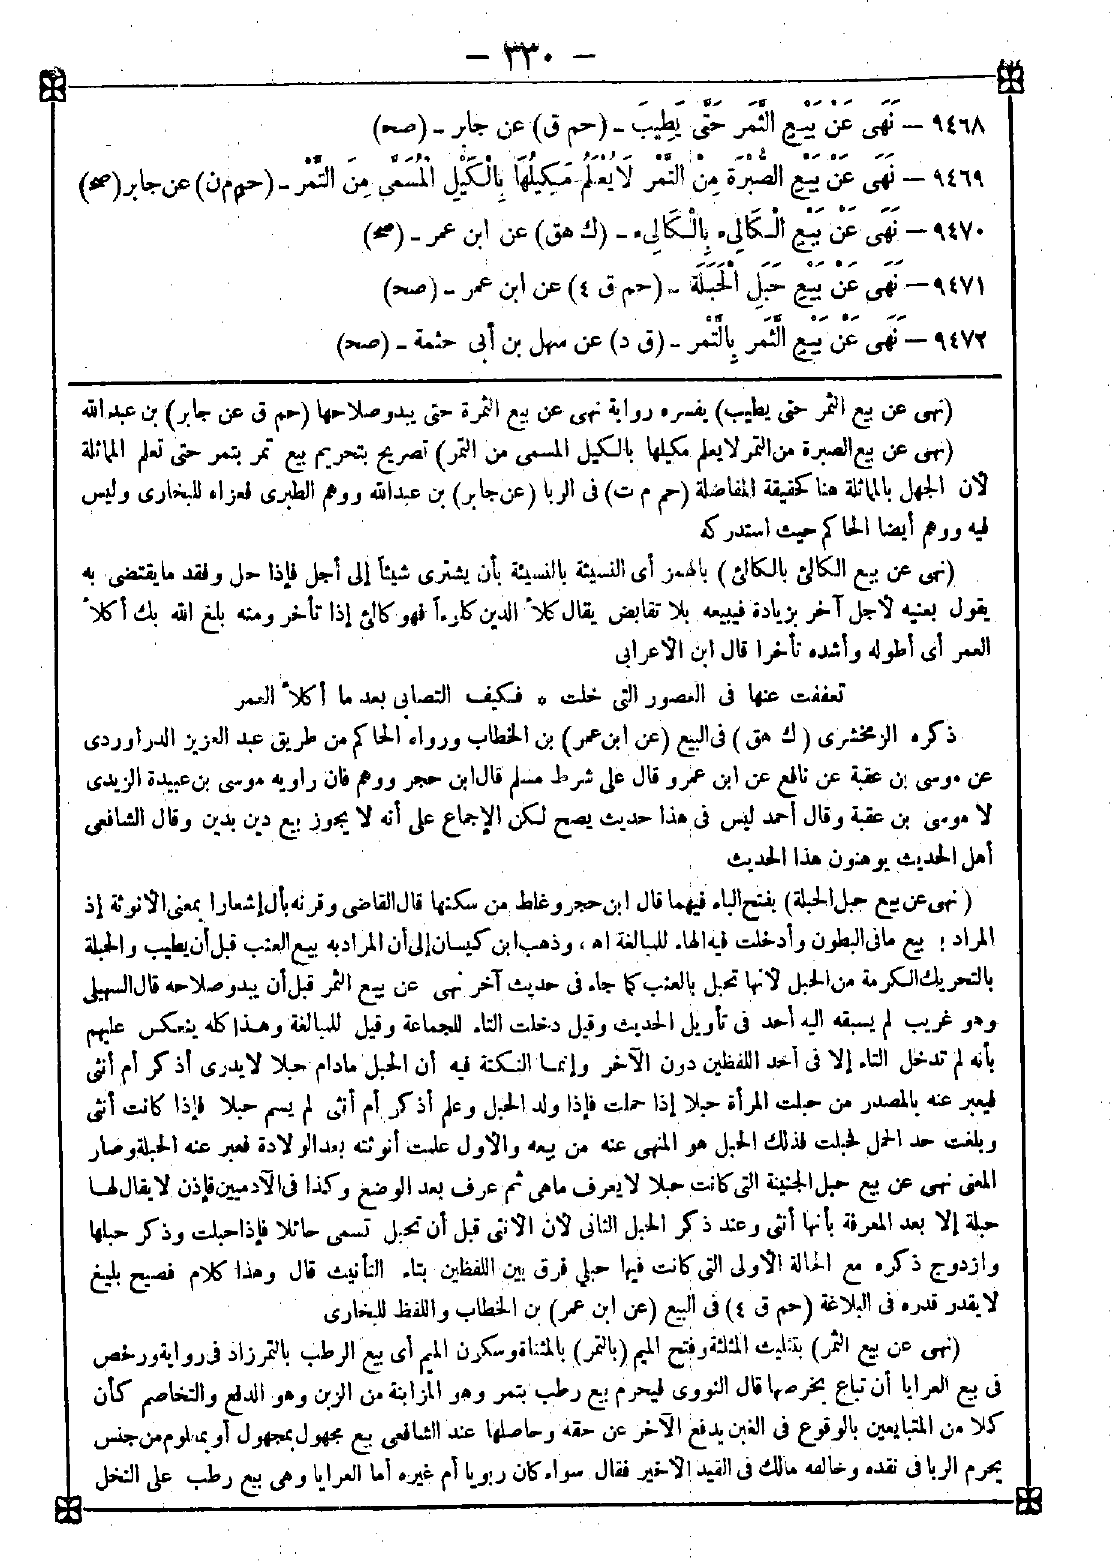 - ٣٣٠ -
٩٤٦٨ - نَهَى عَنْ بَيْعِ الثَّمَرِ حَتَّى يَطِيبَ - (حم ق) عن جابر - (صح)
٩٤٦٩ - نَهَى عَنْ بَيْعِ الصُّبْرَةِ مِنْ التَّمْرِ لَا يُعْلَمُ مَكِيلُهَا بِالْكَيْلِ الْمُسَمَّى مِنَ التَّمْرِ - (حم م ن) عن جابر (صح)
٩٤٧٠ - نَهَى عَنْ بَيْعِ الْكَالِىءِ بِالْكَالِىءِ - (ك هق) عن ابن عمر - (صح)
٩٤٧١ - نَهَى عَنْ بَيْعِ حَبَلِ الْحَبَلَةِ - (حم ق ٤) عن ابن عمر - (صح)
٩٤٧٢ - نَهَى عَنْ بَيْعِ الثَّمَرِ بِالتَّمْرِ - (ق د) عن سهل بن أبى حثمة - (صح)
(نهى عن بيع الثمر حتى يطيب) يفسره رواية نهى عن بيع الثمرة حتى يبدو صلاحها (حم ق عن جابر) بن عبد الله
(نهى عن بيع الصبرة من التمر لا يعلم مكيلها بالكيل المسمى من التمر) تصريح بتحريم بيع تمر بتمر حتى تعلم المماثلة
لأن الجهل بالمماثلة هنا كحقيقة المفاضلة (حم م ت) فى الربا (عن جابر) بن عبد الله ووهم الطبرى فعزاه للبخارى وليس
فيه ووهم أيضا الحاكم حيث استدركه
(نهى عن بيع الكالئ بالكالئ) بالهمز أى النسيئة بالنسيئة بأن يشترى شيئاً إلى أجل فإذا حل وفقد ما يقتضى به
يقول بعنيه لأجل آخر بزيادة فيبيعه بلا تقابض يقال كلأ الدين كلوءاً فهو كالئ إذا تأخر ومنه بلغ الله بك أكلأ
العمر أى أطوله وأشده تأخرا قال ابن الأعرابى
تعففت عنها فى العصور التى خلت * فكيف التصابى بعد ما أكلأ العمر
ذكره الزمخشرى (ك هق) فى البيع (عن ابن عمر) بن الخطاب ورواه الحاكم من طريق عبد العزيز الدراوردى
عن موسى بن عقبة عن نافع عن ابن عمرو قال على شرط مسلم قال ابن حجر ووهم فان راويه موسى بن عبيدة الزيدى
لا موسى بن عقبة وقال أحمد ليس فى هذا حديث يصح لكن الإجماع على أنه لا يجوز بيع دين بدين وقال الشافعى
أهل الحديث يوهنون هذا الحديث
(نهى عن بيع حبل الحبلة) بفتح الباء فيهما قال ابن حجر وغلط من سكنها قال القاضى وقرنه بأل إشعارا بمعنى الأنوثة إذ
المراد بيع مافى البطون وأدخلت فيه الهاء للمبالغة اه ، وذهب ابن كيسان إلى أن المراد به بيع العنب قبل أن يطيب والحبلة
بالتحريك الكرمة من الحبل لأنها تحبل بالعنب كما جاء فى حديث آخر نهى عن بيع الثمر قبل أن يبدو صلاحه قال السهيلى
وهو غريب لم يسبقه اليه أحد فى تأويل الحديث وقيل دخلت التاء للجماعة وقيل للمبالغة وهذا كله ينعكس عليهم
بأنه لم تدخل التاء إلا فى أحد اللفظين دون الآخر وإنما النكتة فيه أن الحبل مادام حبلا لا يدرى أذكر أم أنثى
فيعبر عنه بالمصدر من حبلت المرأة حبلا إذا حملت فإذا ولد الحبل وعلم أذكر أم أنثى لم يسم حبلا فإذا كانت أنثى
وبلغت حد الحمل لحبلت فذلك الحبل هو المنهى عنه من بيعه والأول علمت أنوثته بعد الولادة فعبر عنه الحبلة وصار
المعنى نهى عن بيع حبل الجنينة التى كانت حبلا لا يعرف ماهى ثم عرف بعد الوضع وكذا فى الآدميين فإذن لا يقال لهـا
حبلة إلا بعد المعرفة بأنها أنثى وعند ذكر الحبل الثانى لأن الأنثى قبل أن تحبل تسمى حائلا فإذا حبلت وذكر حبلها
وازدوج ذكره مع الحالة الأولى التى كانت فيها حبلى فرق بين اللفظين بتاء التأنيث قال وهذا كلام فصيح بليغ
لا يقدر قدره فى البلاغة (حم ق ٤) فى البيع (عن ابن عمر) بن الخطاب واللفظ للبخارى
(نهى عن بيع الثمر) بتثليث المثلثة وفتح الميم (بالتمر) بالمثناة وسكون الميم أى بيع الرطب بالتمر زاد فى رواية ورخص
فى بيع العرايا أن تباع بخرصها قال النووى فيحرم بيع رطب بتمر وهو المزابنة من الزبن وهو الدفع والتخاصم كأن
كلا من المتبايعين بالوقوع فى الغبن يدفع الآخر عن حقه وحاصلها عند الشافعى بيع مجهول بمجهول أو بمعلوم من جنس
يحرم الربا فى نقده وخالفه مالك فى القيد الأخير فقال سواء كان ربويا أم غيره أما العرايا وهى بيع رطب على النخل